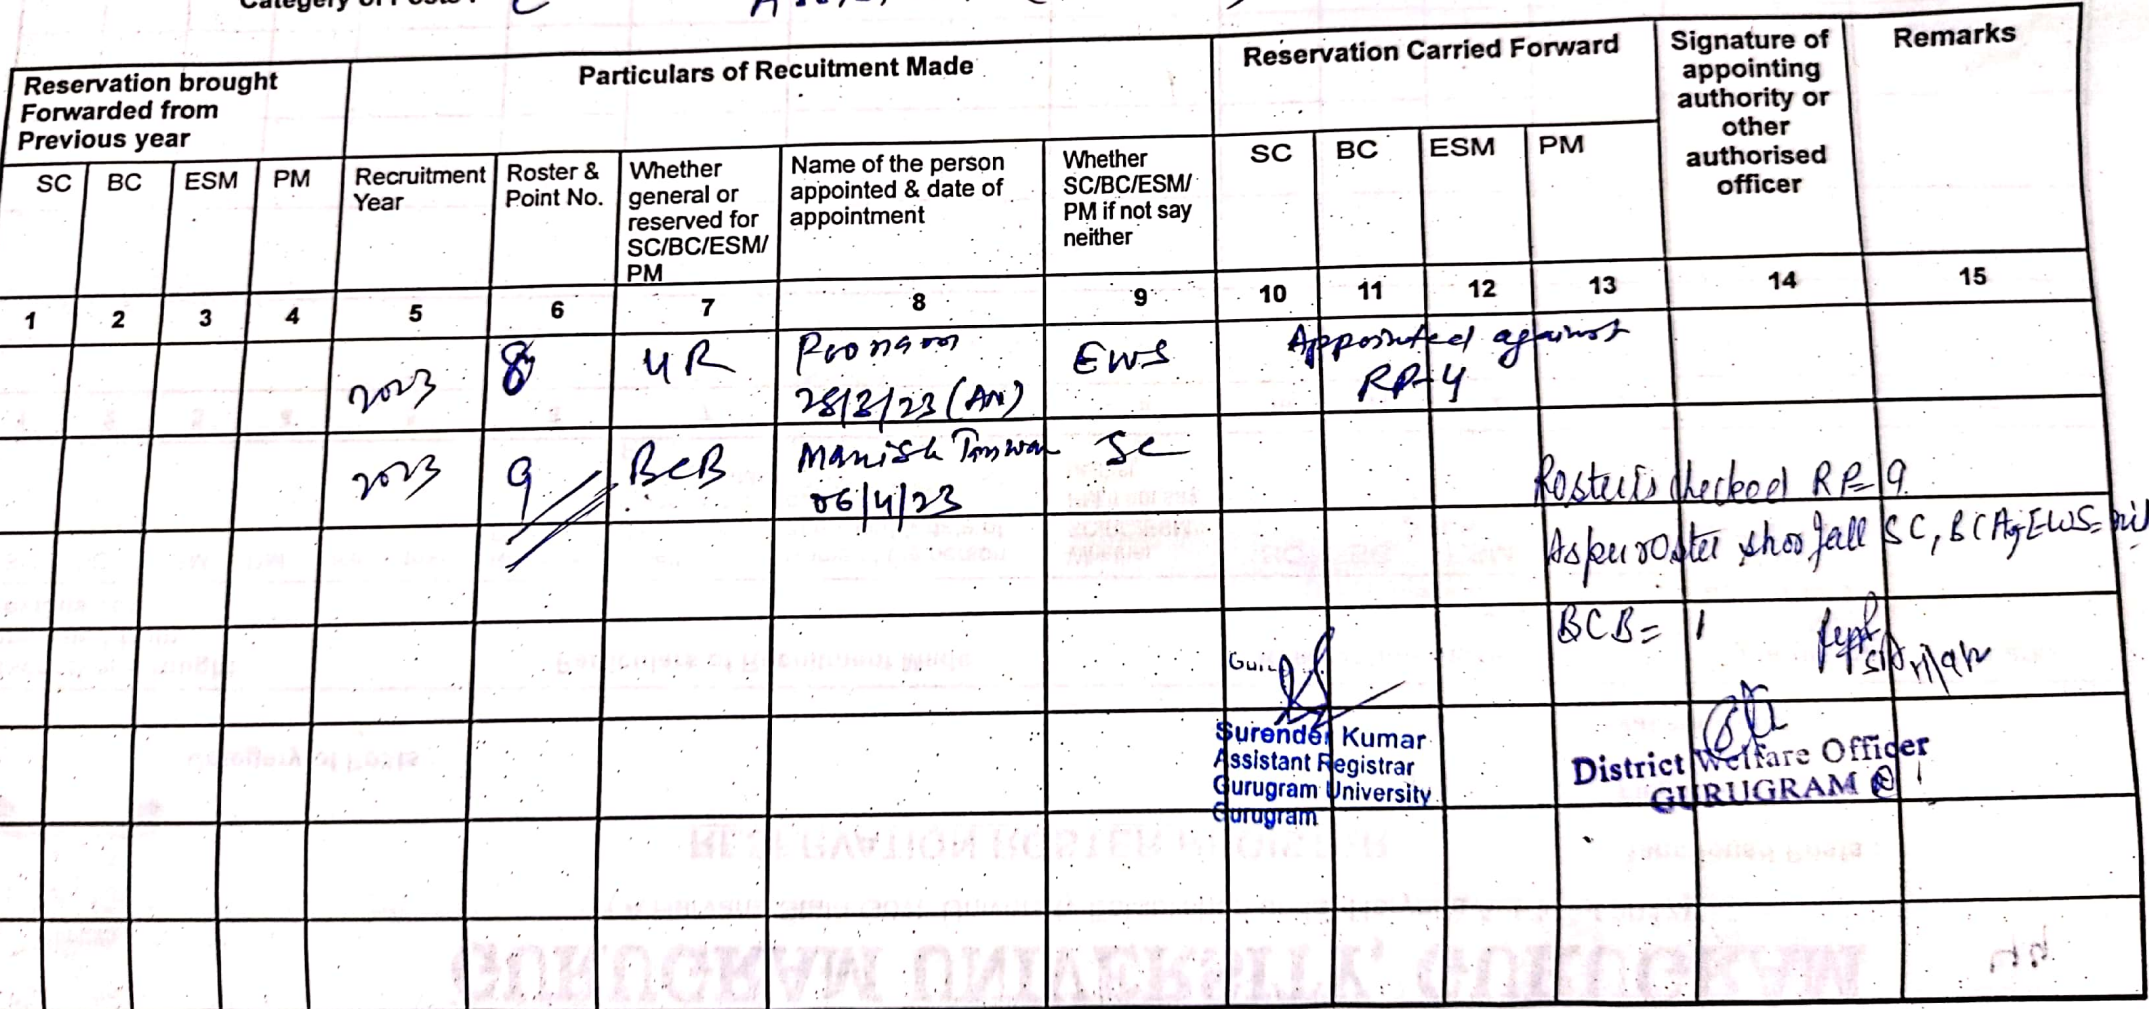 Category of Posts :
Reservation brought
Forwarded from
Previous year
Particulars of Recuitment Made
Reservation Carried Forward
Signature of
appointing
authority or
other
authorised
officer
Remarks
SC BC ESM PM
Recruitment
Year
Roster &
Point No.
Whether
general or
reserved for
SC/BC/ESM/
PM
Name of the person
appointed & date of
appointment
Whether
SC/BC/ESM/
PM if not say
neither
SC BC ESM PM
1 2 3 4 5 6 7 8 9 10 11 12 13 14 15
2023 8 UR Poonam EWS Appointed against
28/3/23 (AN) RP-4
2023 9 BCB Manish SC
06/4/23
Roster is checked RP=9
As per roster shortfall SC, BCA, EWS= nil
BCB= 1
Surender Kumar
Assistant Registrar
Gurugram University
Gurugram
District Welfare Officer
GURUGRAM